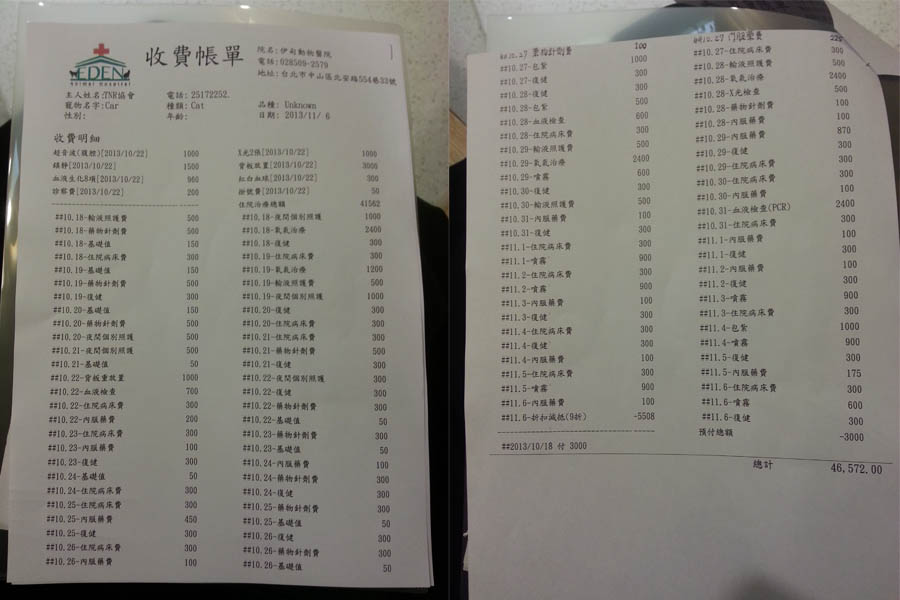 EDEN
Animal Hospital
收費帳單
院名:伊甸動物醫院
電話:028509-2579
地址:台北市中山區北安路554巷33號
主人姓名:TNR協會 電話:25172252.
寵物名字:Car 種類:Cat 品種: Unknown
性別: 年齡: 日期: 2013/11/ 6
收費明細
超音波(腹腔)[2013/10/22] 1000 X光2張[2013/10/22] 1000
鎮靜[2013/10/22] 1500 骨板放置[2013/10/22] 3000
血液生化8項[2013/10/22] 960 紅白血球[2013/10/22] 300
診察費[2013/10/22] 200 掛號費[2013/10/22] 50
住院治療總額 41562
##10.18-輸液照護費 500 ##10.18-夜間個別照護 1000
##10.18-藥物針劑費 500 ##10.18-氧氣治療 2400
##10.18-基礎值 150 ##10.18-復健 300
##10.18-住院病床費 300 ##10.19-住院病床費 300
##10.19-基礎值 150 ##10.19-氧氣治療 1200
##10.19-藥物針劑費 500 ##10.19-輸液照護費 500
##10.19-復健 300 ##10.19-夜間個別照護 1000
##10.20-基礎值 150 ##10.20-復健 300
##10.20-藥物針劑費 500 ##10.20-住院病床費 300
##10.20-夜間個別照護 500 ##10.21-住院病床費 300
##10.21-夜間個別照護 500 ##10.21-藥物針劑費 500
##10.21-基礎值 50 ##10.21-復健 300
##10.22-骨板重放置 1000 ##10.22-夜間個別照護 300
##10.22-血液檢查 700 ##10.22-復健 300
##10.22-住院病床費 300 ##10.22-藥物針劑費 300
##10.22-內服藥費 200 ##10.22-基礎值 50
##10.23-住院病床費 300 ##10.23-藥物針劑費 300
##10.23-內服藥費 100 ##10.23-基礎值 50
##10.23-復健 300 ##10.24-內服藥費 100
##10.24-基礎值 50 ##10.24-藥物針劑費 300
##10.24-住院病床費 300 ##10.24-復健 300
##10.25-住院病床費 300 ##10.25-藥物針劑費 300
##10.25-內服藥費 450 ##10.25-基礎值 50
##10.25-復健 300 ##10.26-復健 300
##10.26-住院病床費 300 ##10.26-藥物針劑費 300
##10.26-內服藥費 100 ##10.26-基礎值 50
##10.27-藥物針劑費 100 ##10.27-內服藥費 225
##10.27-包紮 1000 ##10.27-住院病床費 300
##10.27-復健 300 ##10.28-輸液照護費 500
##10.28-包紮 500 ##10.28-氧氣治療 2400
##10.28-血液檢查 600 ##10.28-X光檢查 500
##10.28-住院病床費 300 ##10.28-藥物針劑費 100
##10.29-輸液照護費 500 ##10.28-內服藥費 100
##10.29-氧氣治療 2400 ##10.29-內服藥費 870
##10.29-噴霧 600 ##10.29-復健 300
##10.30-復健 300 ##10.29-住院病床費 300
##10.30-輸液照護費 500 ##10.30-住院病床費 300
##10.30-內服藥費 100 ##10.31-血液檢查(PCR) 2400
##10.31-復健 300 ##10.31-住院病床費 300
##11.1-住院病床費 300 ##11.1-內服藥費 100
##11.1-噴霧 900 ##11.1-復健 300
##11.2-住院病床費 300 ##11.2-內服藥費 100
##11.2-噴霧 900 ##11.2-復健 300
##11.3-內服藥費 100 ##11.3-噴霧 900
##11.3-復健 300 ##11.3-住院病床費 300
##11.4-住院病床費 300 ##11.4-包紮 1000
##11.4-復健 300 ##11.4-噴霧 900
##11.4-內服藥費 100 ##11.5-復健 300
##11.5-住院病床費 300 ##11.5-內服藥費 175
##11.5-噴霧 900 ##11.6-住院病床費 300
##11.6-內服藥費 100 ##11.6-噴霧 600
##11.6-折扣減抵(9折) -5508 ##11.6-復健 300
預付總額 -3000
##2013/10/18 付 3000
總計 46,572.00